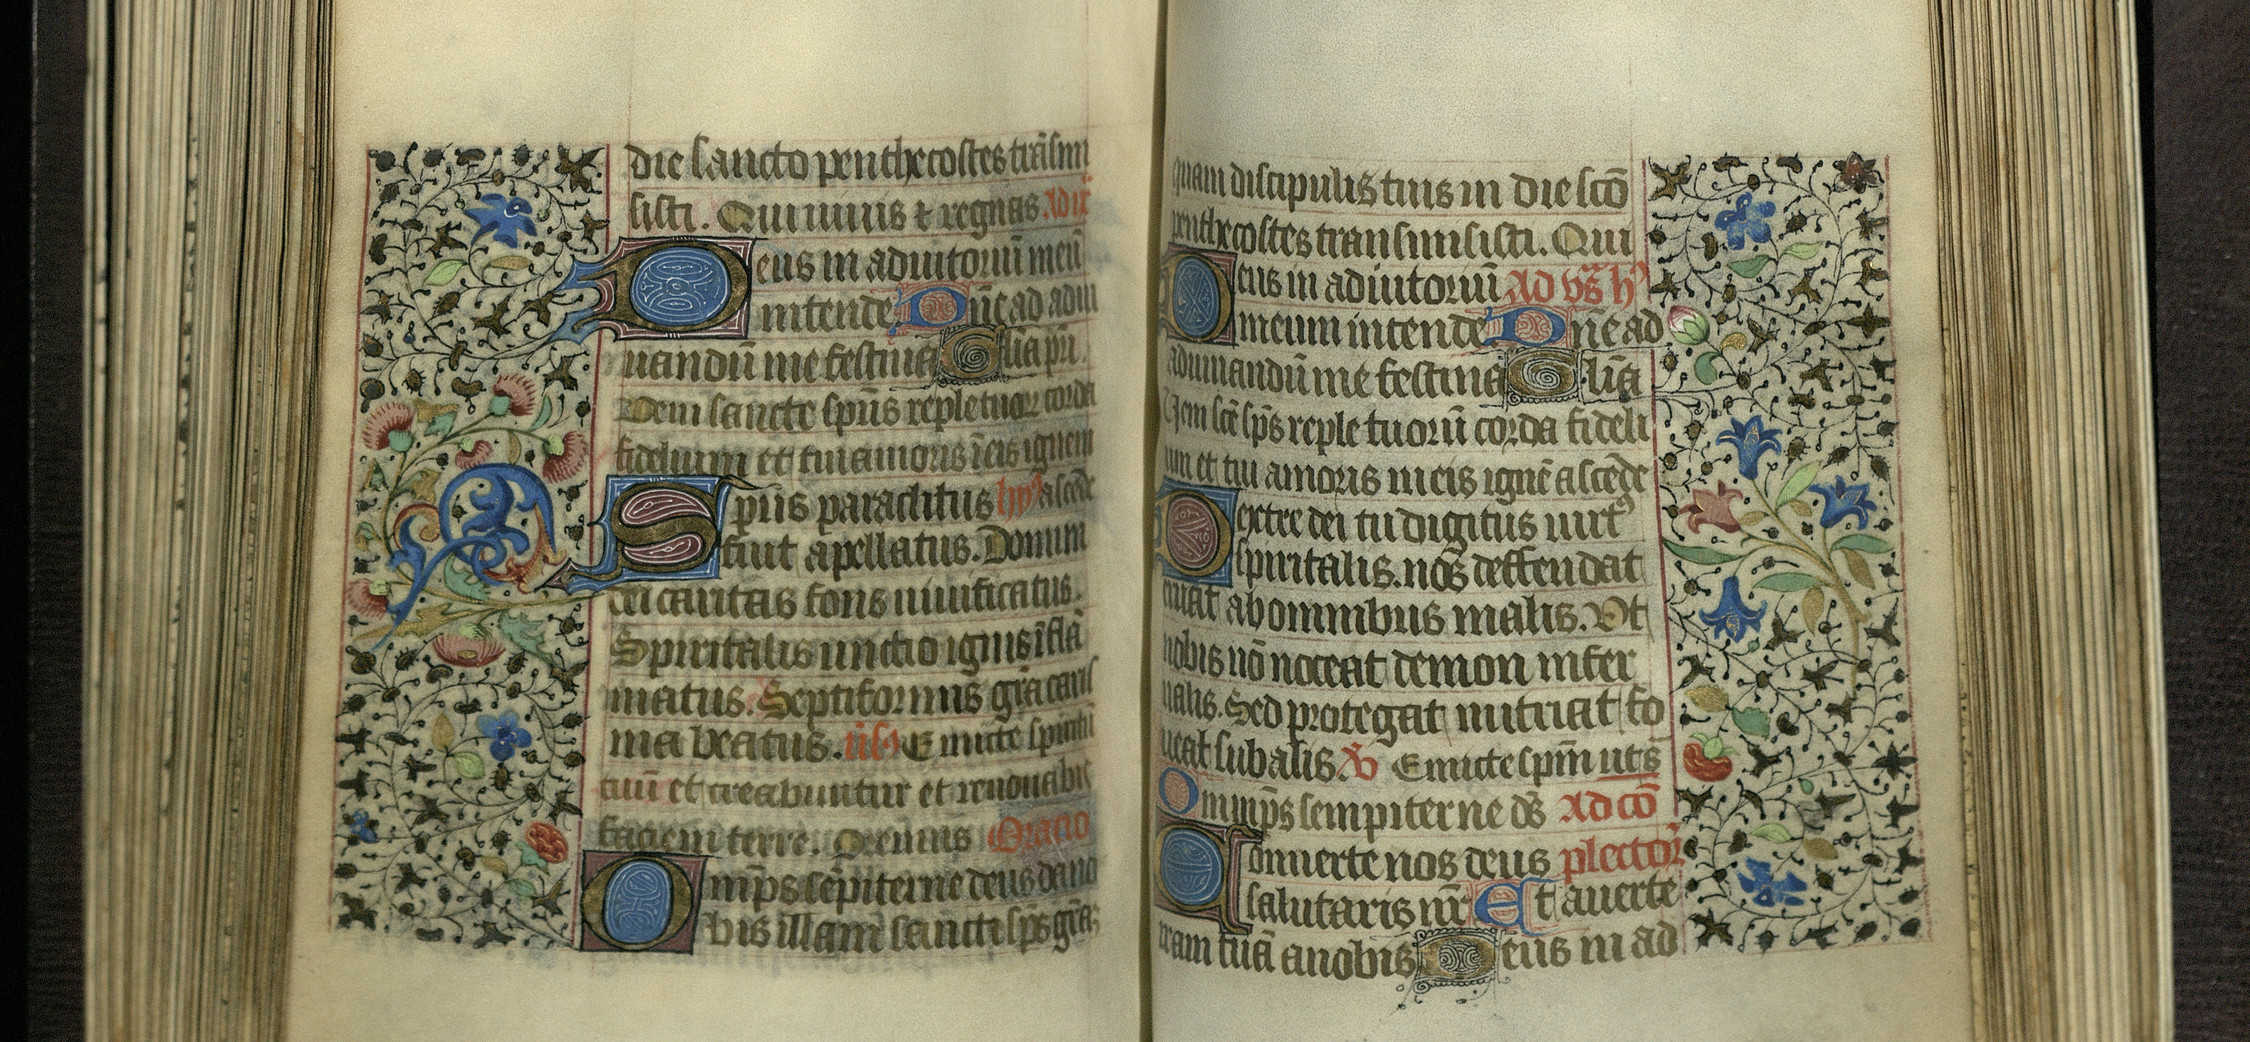 die sancto penthecostes trãsmi
sisti. Qui uiuis ⁊ regnas. Ad
Deus in adiutoriũ meũ
intende Dñe ad adiu
uandũ me festina Glia pri.
Veni sancte spũs reple tuoꝝ corda
fidelium et tui amoris ĩ eis ignem
Spũs paraclitus ascẽde
fuit apellatus. Donum
dei caritas fons uiuificatus.
Spiritalis unctio ignis ĩflã
matus. Septiformis gr̃a caris
ma beatus. Emicte spiritũ
tuũ et creabuntur et renouabis
faciem terre. Oremus Oratio
Omp̃s sẽpiterne deus da no
bis illam sancti sp̃s gr̃az
quam discipulis tuis in die scõ
penthecostes transmisisti. Qui
Deus in adiutoriũ Ad vs̃ hꝰ
meum intende Dñe ad
adiuuandũ me festina Glia
Veni scẽ sp̃s reple tuorũ corda fideli
um et tui amoris in eis ignẽ ascẽde
Dextre dei tu digitus uirtꝰ
spiritalis. nos deffendat
eruat ab omnibus malis. Vt
nobis nõ noceat demon infer
nalis. Sed protegat nutriat fo
ueat sub alis Emicte spm̃ uts̃
Omnip̃s sempiterne ds̃ Ad cõ
Conuerte nos deus plectoꝝ
salutaris nr̃ Et auerte
iram tuã a nobis Deus in ad